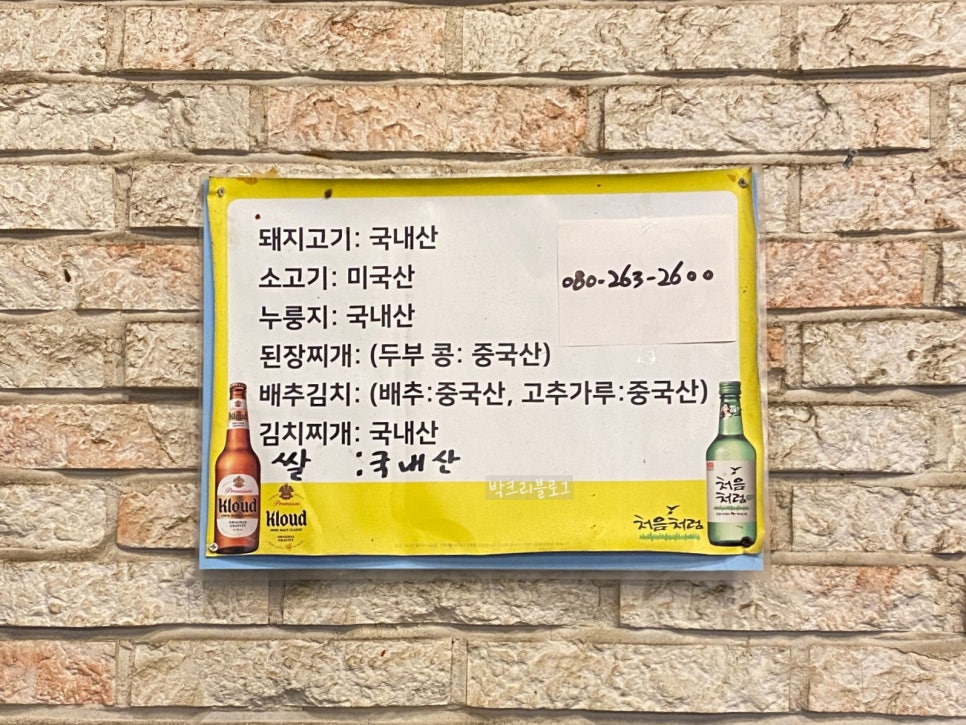 돼지고기: 국내산
소고기: 미국산
080-263-2600
누룽지: 국내산
된장찌개: (두부 콩: 중국산)
배추김치: (배추:중국산, 고추가루:중국산)
김치찌개: 국내산
쌀 :국내산
박크리블로그
Premium
Kloud
ORIGINAL GRAVITY
Premium
Kloud
ORIGINAL GRAVITY
처음처럼
처음
처럼